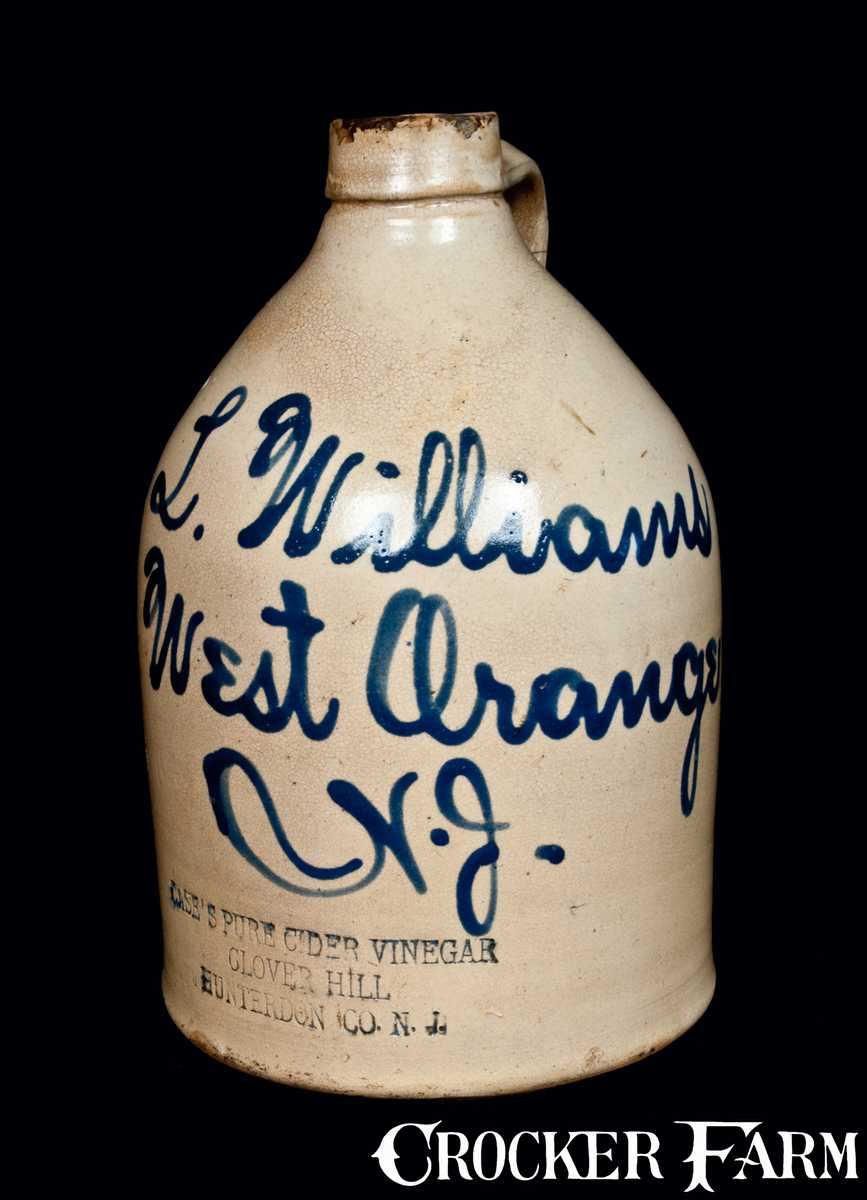 L. Williams
West Orange
N.J.
CASE'S PURE CIDER VINEGAR
CLOVER HILL
HUNTERDON CO. N. J.
CROCKER FARM